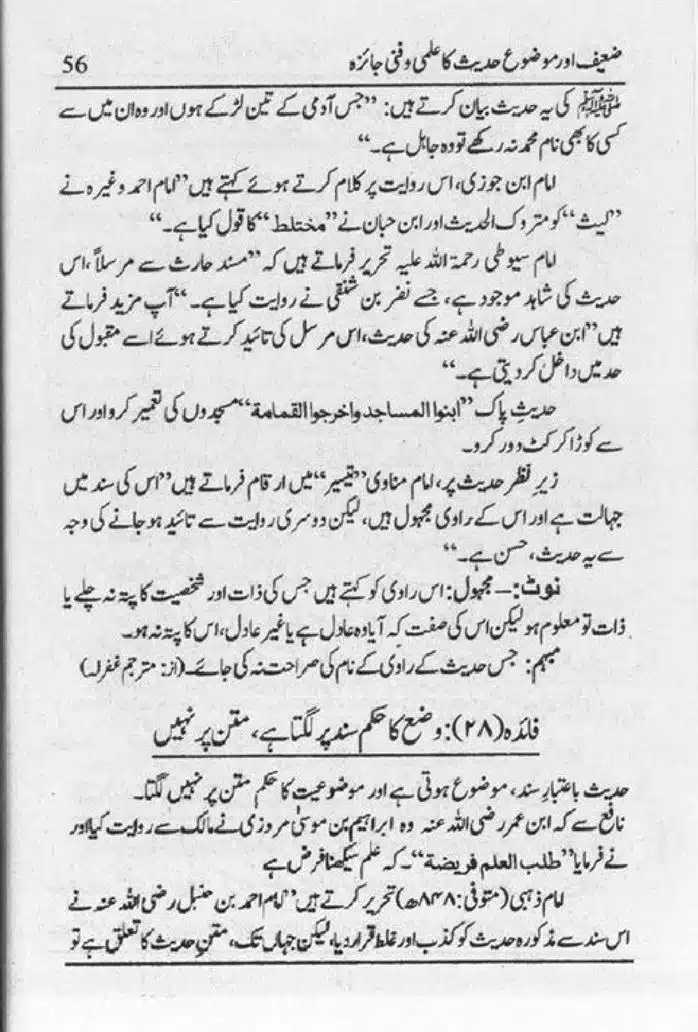 ضعیف اور موضوع حدیث کا علمی و فنی جائزہ 56
ﷺ کی یہ حدیث بیان کرتے ہیں: ”جس آدمی کے تین لڑکے ہوں اور وہ ان میں سے
کسی کا بھی نام محمد نہ رکھے تو وہ جاہل ہے۔“
امام ابن جوزی، اس روایت پر کلام کرتے ہوئے کہتے ہیں ”امام احمد وغیرہ نے
”لیث“ کو متروک الحدیث اور ابن حبان نے ”مختلط“ کا قول کیا ہے۔“
امام سیوطی رحمۃ اللہ علیہ تحریر فرماتے ہیں کہ ”مسند حارث سے مرسلاً، اس
حدیث کی شاہد موجود ہے، جسے نضر بن شنقی نے روایت کیا ہے۔“ آپ مزید فرماتے
ہیں ”ابن عباس رضی اللہ عنہ کی حدیث، اس مرسل کی تائید کرتے ہوئے اسے مقبول کی
حد میں داخل کر دیتی ہے۔“
حدیثِ پاک ”ابنوا المساجد واخرجوا القمامة“ مسجدوں کی تعمیر کرو اور اس
سے کوڑا کرکٹ دور کرو۔
زیرِ نظر حدیث پر، امام مناوی ”تیسیر“ میں ارقام فرماتے ہیں ”اس کی سند میں
جہالت ہے اور اس کے راوی مجہول ہیں، لیکن دوسری روایت سے تائید ہو جانے کی وجہ
سے یہ حدیث، حسن ہے۔“
نوٹ:— مجہول: اس راوی کو کہتے ہیں جس کی ذات اور شخصیت کا پتہ نہ چلے یا
ذات تو معلوم ہو لیکن اس کی صفت کہ آیا وہ عادل ہے یا غیر عادل، اس کا پتہ نہ ہو۔
مبہم: جس حدیث کے راوی کے نام کی صراحت نہ کی جائے۔ (از: مترجم غفرلہ)
فائدہ (۲۸): وضع کا حکم سند پر لگتا ہے، متن پر نہیں
حدیث باعتبارِ سند، موضوع ہوتی ہے اور موضوعیت کا حکم متن پر نہیں لگتا۔
نافع سے کہ ابن عمر رضی اللہ عنہ وہ ابراہیم بن موسیٰ مروزی نے مالک سے روایت کیا اور
نے فرمایا ”طلب العلم فریضة“۔ کہ علم سیکھنا فرض ہے
امام ذہبی (متوفی: ۸۴۸ھ) تحریر کرتے ہیں ”امام احمد بن حنبل رضی اللہ عنہ نے
اس سند سے مذکورہ حدیث کو کذب اور غلط قرار دیا، لیکن جہاں تک، متنِ حدیث کا تعلق ہے تو